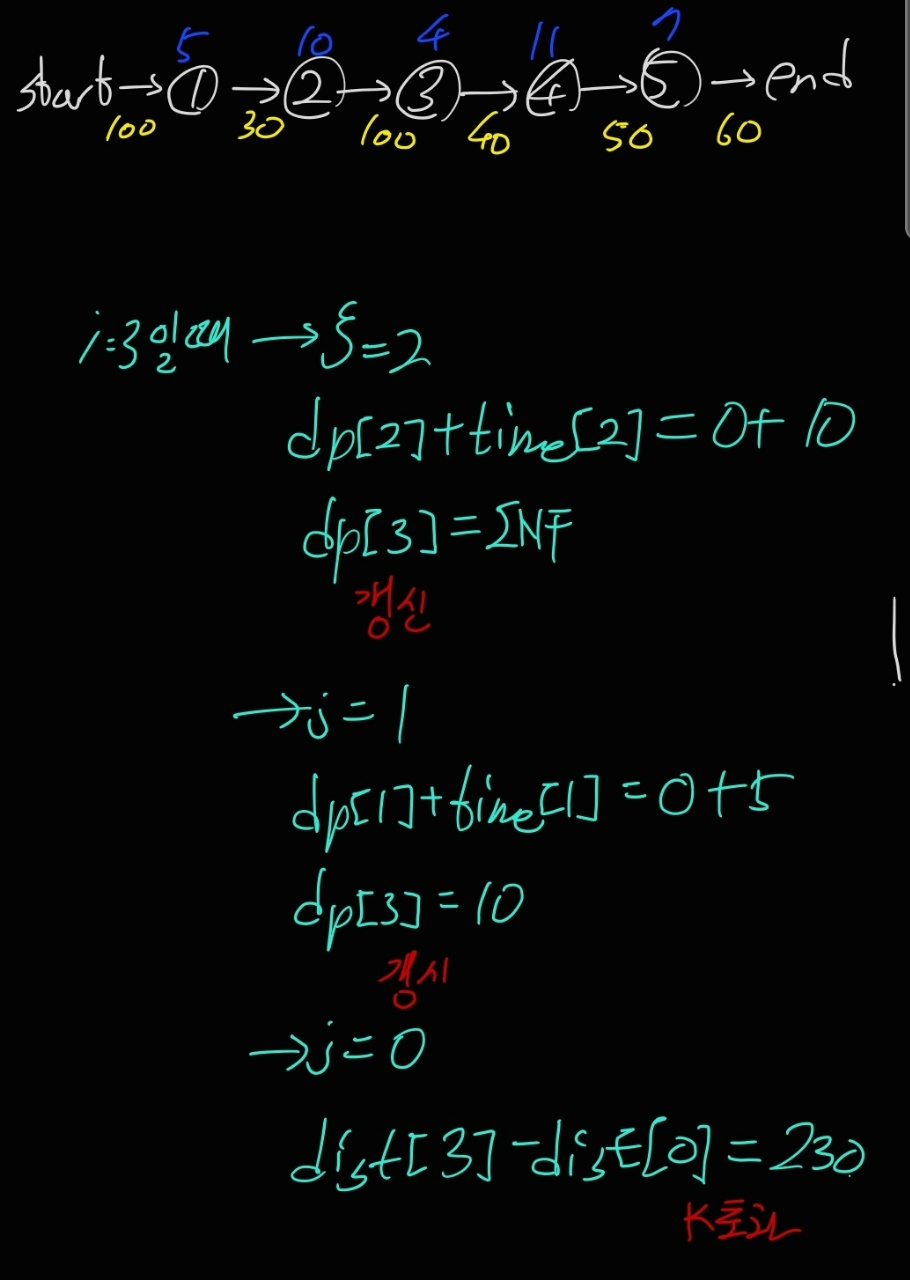 5 10 4 11 7
start → ① → ② → ③ → ④ → ⑤ → end
100 30 100 40 50 60
i=3일때 → j=2
dp[2]+time[2]=0+10
dp[3]=INF
갱신
→ j=1
dp[1]+time[1]=0+5
dp[3]=10
갱시
→ j=0
dist[3]-dist[0]=230
K초과